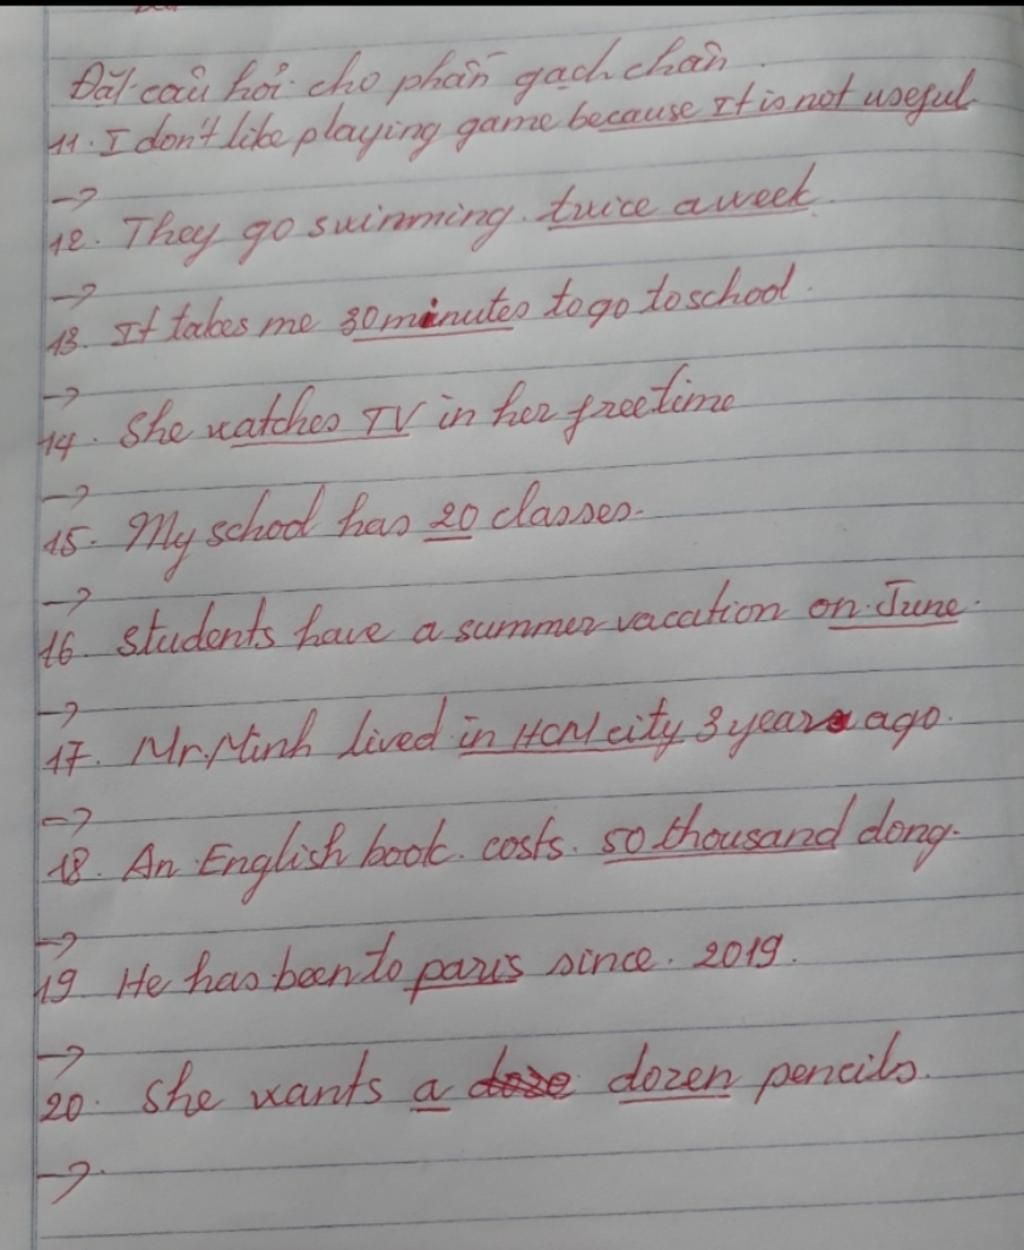 Đặt câu hỏi cho phần gạch chân.
11. I don't like playing game because It is not useful
->
12. They go swimming. twice a week.
->
13. It takes me 30 minutes to go to school.
->
14. She watches TV in her free time
->
15. My school has 20 classes.
->
16. Students have a summer vacation on June.
->
17. Mr. Minh lived in HCM city 3 years ago.
->
18. An English book. costs. 50 thousand dong.
->
19 He has been to paris since. 2019.
->
20. She wants a dozen pencils.
->.